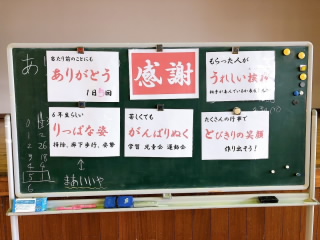 あ
当たり前のことにも
ありがとう
1日 回
感謝
もらった人が
うれしい挨拶
6年生らしい
りっぱな姿
掃除、廊下歩行、姿勢
苦しくても
がんばりぬく
学習 児童会 運動会
たくさんの行事で
とびきりの笑顔
作り出そう!
まあいいや